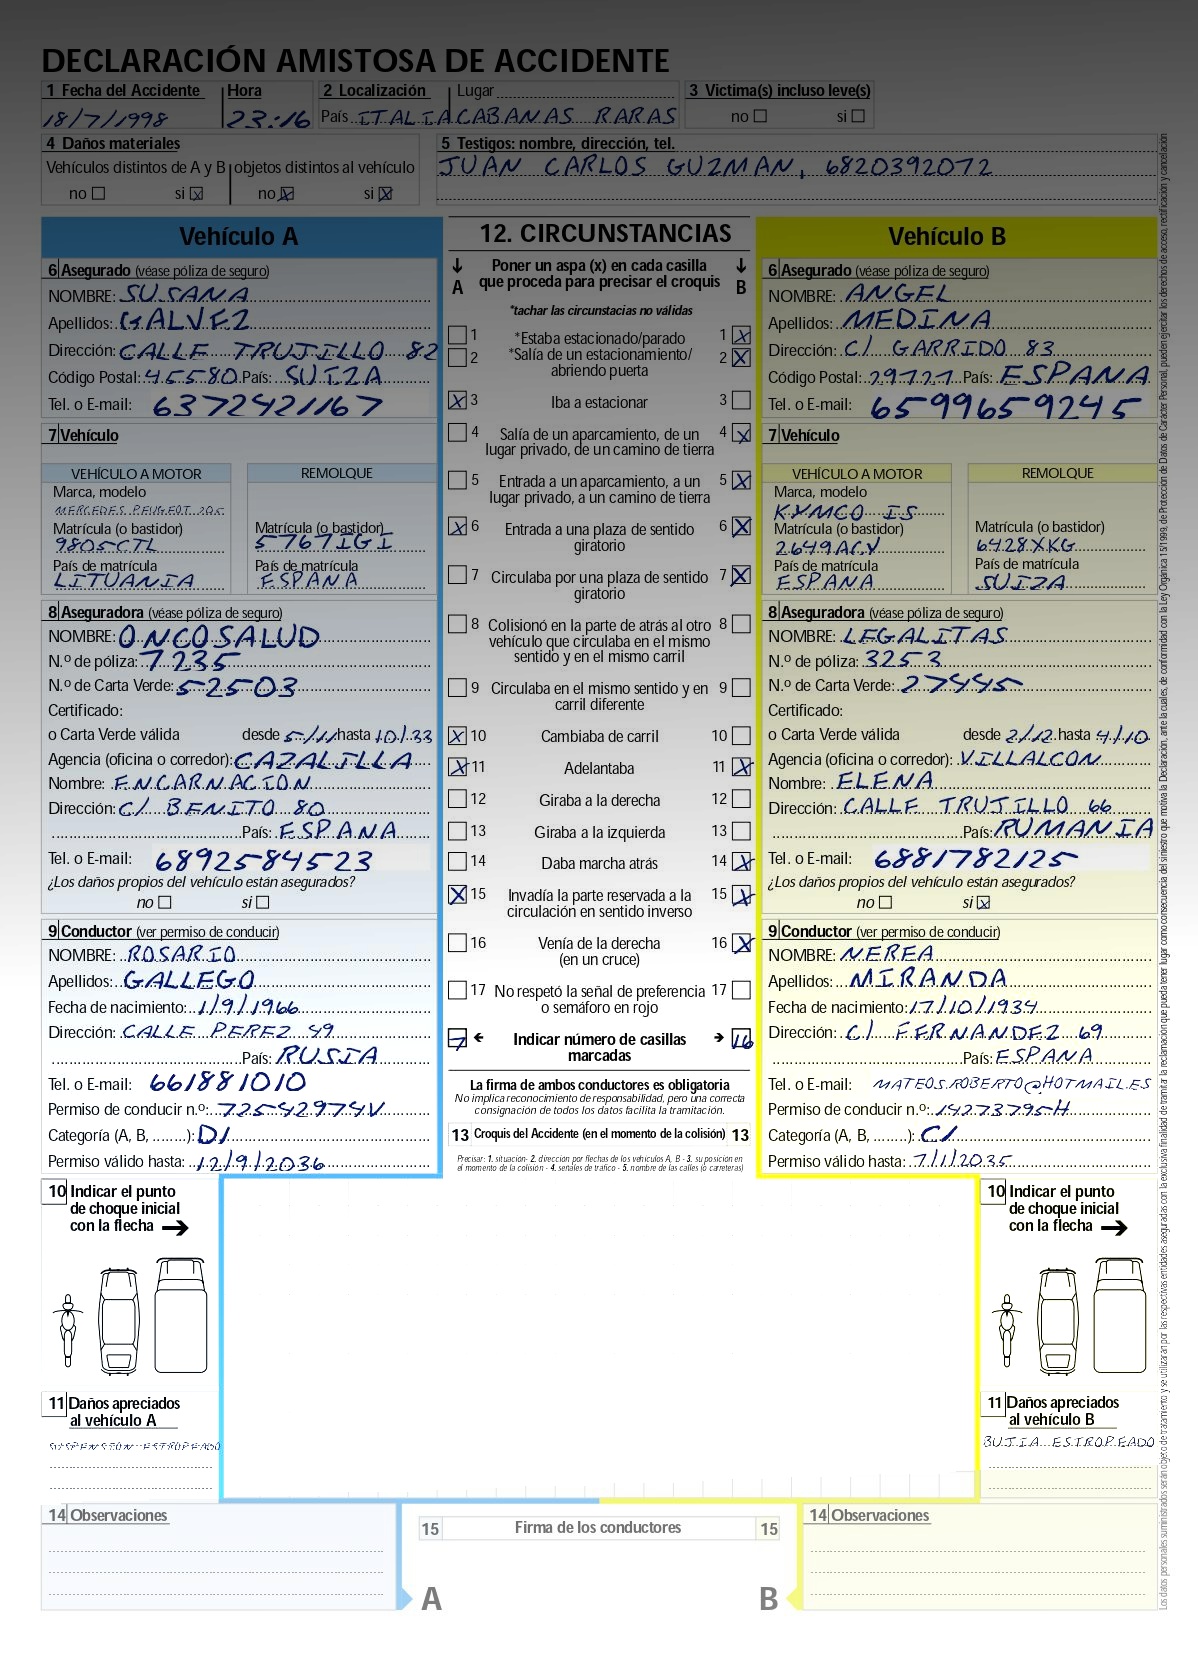 DECLARACIÓN AMISTOSA DE ACCIDENTE
1 Fecha del Accidente Hora 2 Localización Lugar 3 Victima(s) incluso leve(s)
18/7/1998 23:16 País ITALIA CABANAS RARAS no si
4 Daños materiales 5 Testigos: nombre, dirección, tel.
Vehículos distintos de A y B objetos distintos al vehículo JUAN CARLOS GUZMAN, 6820392072
no si X no X si X
Vehículo A
6 Asegurado (véase póliza de seguro)
NOMBRE: SUSANA
Apellidos: GALVEZ
Dirección: CALLE TRUJILLO 82
Código Postal: 45580 País: SUIZA
Tel. o E-mail: 6372421167
7 Vehículo
VEHÍCULO A MOTOR REMOLQUE
Marca, modelo
MERCEDES PEUGEOT 205
Matrícula (o bastidor) Matrícula (o bastidor)
9805CTL 5767IGI
País de matrícula País de matrícula
LITUANIA ESPANA
8 Aseguradora (véase póliza de seguro)
NOMBRE: ONCOSALUD
N.º de póliza: 7235
N.º de Carta Verde: 52503
Certificado:
o Carta Verde válida desde 5/11 hasta 10/33
Agencia (oficina o corredor): CAZALILLA
Nombre: ENCARNACION
Dirección: C/ BENITO 80
País: ESPANA
Tel. o E-mail: 6892584523
¿Los daños propios del vehículo están asegurados?
no si
9 Conductor (ver permiso de conducir)
NOMBRE: ROSARIO
Apellidos: GALLEGO
Fecha de nacimiento: 1/9/1966
Dirección: CALLE PEREZ 49
País: RUSIA
Tel. o E-mail: 661881010
Permiso de conducir n.º: 72542974V
Categoría (A, B, ........): D1
Permiso válido hasta: 12/9/2036
10 Indicar el punto
de choque inicial
con la flecha
11 Daños apreciados
al vehículo A
SUSPENSION ESTROPEADO
14 Observaciones
12. CIRCUNSTANCIAS
A Poner un aspa (x) en cada casilla B
que proceda para precisar el croquis
*tachar las circunstacias no válidas
1 *Estaba estacionado/parado 1 X
2 *Salía de un estacionamiento/ 2 X
abriendo puerta
X 3 Iba a estacionar 3
4 Salía de un aparcamiento, de un 4 X
lugar privado, de un camino de tierra
5 Entrada a un aparcamiento, a un 5 X
lugar privado, a un camino de tierra
X 6 Entrada a una plaza de sentido 6 X
giratorio
7 Circulaba por una plaza de sentido 7 X
giratorio
8 Colisionó en la parte de atrás al otro 8
vehículo que circulaba en el mismo
sentido y en el mismo carril
9 Circulaba en el mismo sentido y en 9
carril diferente
X 10 Cambiaba de carril 10
X 11 Adelantaba 11 X
12 Giraba a la derecha 12
13 Giraba a la izquierda 13
14 Daba marcha atrás 14 X
X 15 Invadía la parte reservada a la 15 X
circulación en sentido inverso
16 Venía de la derecha 16 X
(en un cruce)
17 No respetó la señal de preferencia 17
o semáforo en rojo
7 Indicar número de casillas 16
marcadas
La firma de ambos conductores es obligatoria
No implica reconocimiento de responsabilidad, pero una correcta
consignación de todos los datos facilita la tramitación.
13 Croquis del Accidente (en el momento de la colisión) 13
Precisar: 1. situación- 2. dirección por flechas de los vehículos A, B - 3. su posición en
el momento de la colisión - 4. señales de tráfico - 5. nombre de las calles (o carreteras)
15 Firma de los conductores 15
A B
Vehículo B
6 Asegurado (véase póliza de seguro)
NOMBRE: ANGEL
Apellidos: MEDINA
Dirección: C/ GARRIDO 83
Código Postal: 29727 País: ESPANA
Tel. o E-mail: 6599659245
7 Vehículo
VEHÍCULO A MOTOR REMOLQUE
Marca, modelo
KYMCO IS
Matrícula (o bastidor) Matrícula (o bastidor)
2649ACV 6428XKG
País de matrícula País de matrícula
ESPANA SUIZA
8 Aseguradora (véase póliza de seguro)
NOMBRE: LEGALITAS
N.º de póliza: 3253
N.º de Carta Verde: 27445
Certificado:
o Carta Verde válida desde 2/12 hasta 4/10
Agencia (oficina o corredor): VILLALCON
Nombre: ELENA
Dirección: CALLE TRUJILLO 66
País: RUMANIA
Tel. o E-mail: 6881782125
¿Los daños propios del vehículo están asegurados?
no si X
9 Conductor (ver permiso de conducir)
NOMBRE: NEREA
Apellidos: MIRANDA
Fecha de nacimiento: 17/10/1934
Dirección: C/ FERNANDEZ 69
País: ESPANA
Tel. o E-mail: MATEOS.ROBERTO@HOTMAIL.ES
Permiso de conducir n.º: 14273795H
Categoría (A, B, ........): C1
Permiso válido hasta: 7/1/2035
10 Indicar el punto
de choque inicial
con la flecha
11 Daños apreciados
al vehículo B
BUJIA ESTROPEADO
14 Observaciones
Los datos personales suministrados serán objeto de tratamiento y se utilizaran por las respectivas entidades aseguradas con la exclusiva finalidad de tramitar la reclamación que pueda tener lugar como consecuencia del siniestro que motiva la Declaración, ante la cuales, de conformidad con la Ley Orgánica 15/1999, de Protección de Datos de Carácter Personal, pueden ejercitar los derechos de acceso, rectificación y cancelación